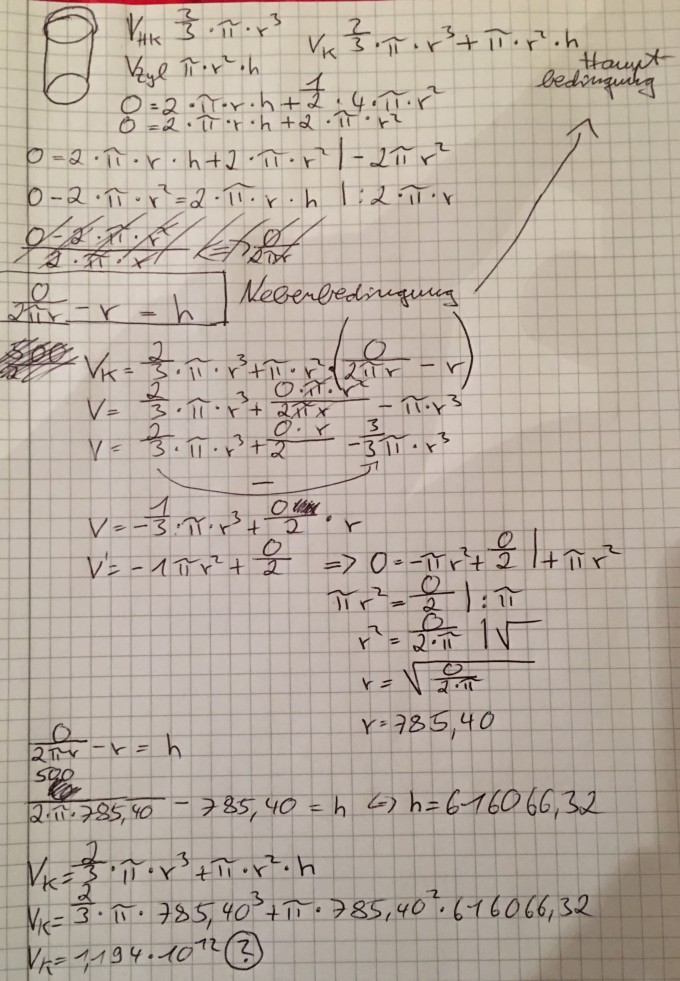 V_HK 2/3 · π · r³
V_K 2/3 · π · r³ + π · r² · h
V_Zyl π · r² · h
Haupt-
bedingung
O = 2 · π · r · h + 1/2 · 4 · π · r²
O = 2 · π · r · h + 2 · π · r²
O = 2 · π · r · h + 2 · π · r² | - 2πr²
O - 2 · π · r² = 2 · π · r · h | : 2 · π · r
(O - 2 · π · r²)/(2 · π · r) <=> O/(2πr)
O/(2πr) - r = h
Nebenbedingung
V_K = 2/3 · π · r³ + π · r² · (O/(2πr) - r)
V = 2/3 · π · r³ + (O · π · r²)/(2πr) - π · r³
V = 2/3 · π · r³ + (O · r)/2 - 3/3 π · r³
−
V = -1/3 · π · r³ + O/2 · r
V' = -1πr² + O/2 => 0 = -πr² + O/2 | + πr²
πr² = O/2 | : π
r² = O/(2·π) | √
r = √(O/(2·π))
r = 785,40
O/(2πr) - r = h
500/(2 · π · 785,40) - 785,40 = h <=> h = 616066,32
V_K = 2/3 · π · r³ + π · r² · h
V_K = 2/3 · π · 785,40³ + π · 785,40² · 616066,32
V_K = 1,194 · 10¹² ?